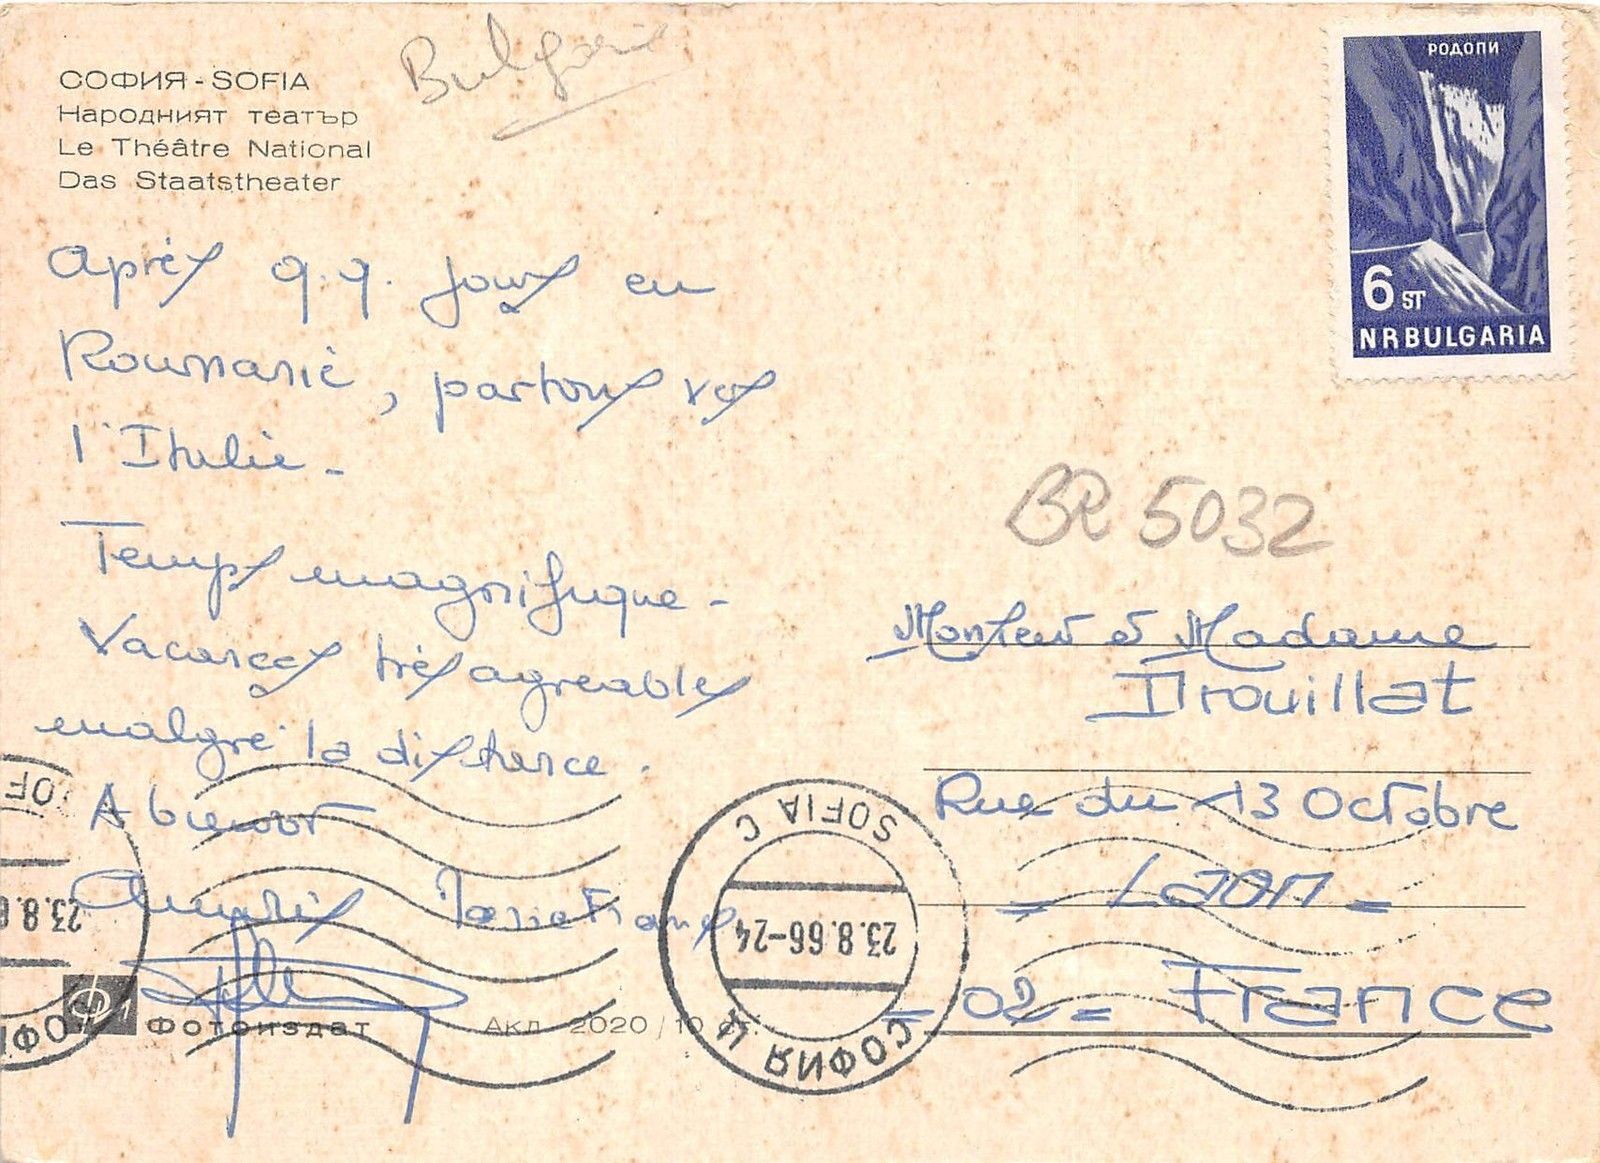 СОФИЯ - SOFIA
Народният театър
Le Théâtre National
Das Staatstheater
Bulgarie
РОДОПИ
6 ST
NRBULGARIA
Après q.q. jours en
Roumanie, partons vers
l'Italie -
Temps magnifique -
Vacances très agréables
malgré la distance.
A bientôt
Amitiés Marie France
BR 5032
Monsieur et Madame
Drouillat
Rue du 13 Octobre
- Laon -
- 02 - France
SOFIA C
23.8.66-24
СОФИЯ Ц
SOF
23.8.6
СОФИ
Фотоиздат Акл 2020/10 ст.